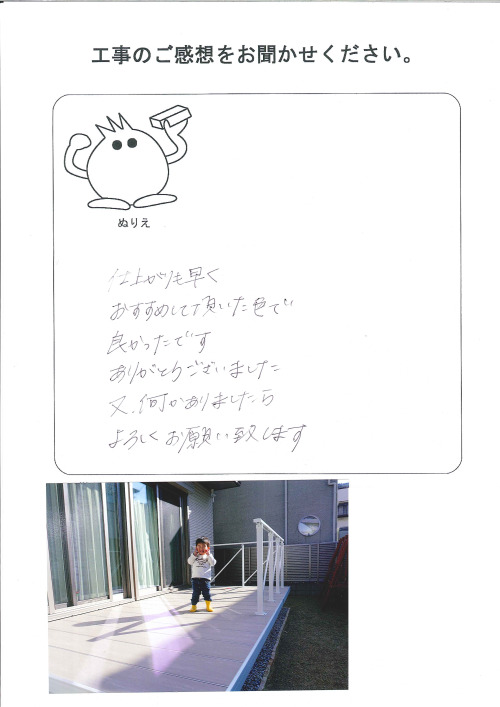 工事のご感想をお聞かせください。
ぬりえ
仕上がりも早く
おすすめして頂いた色で
良かったです
ありがとうございました
又、何かありましたら
よろしくお願い致します